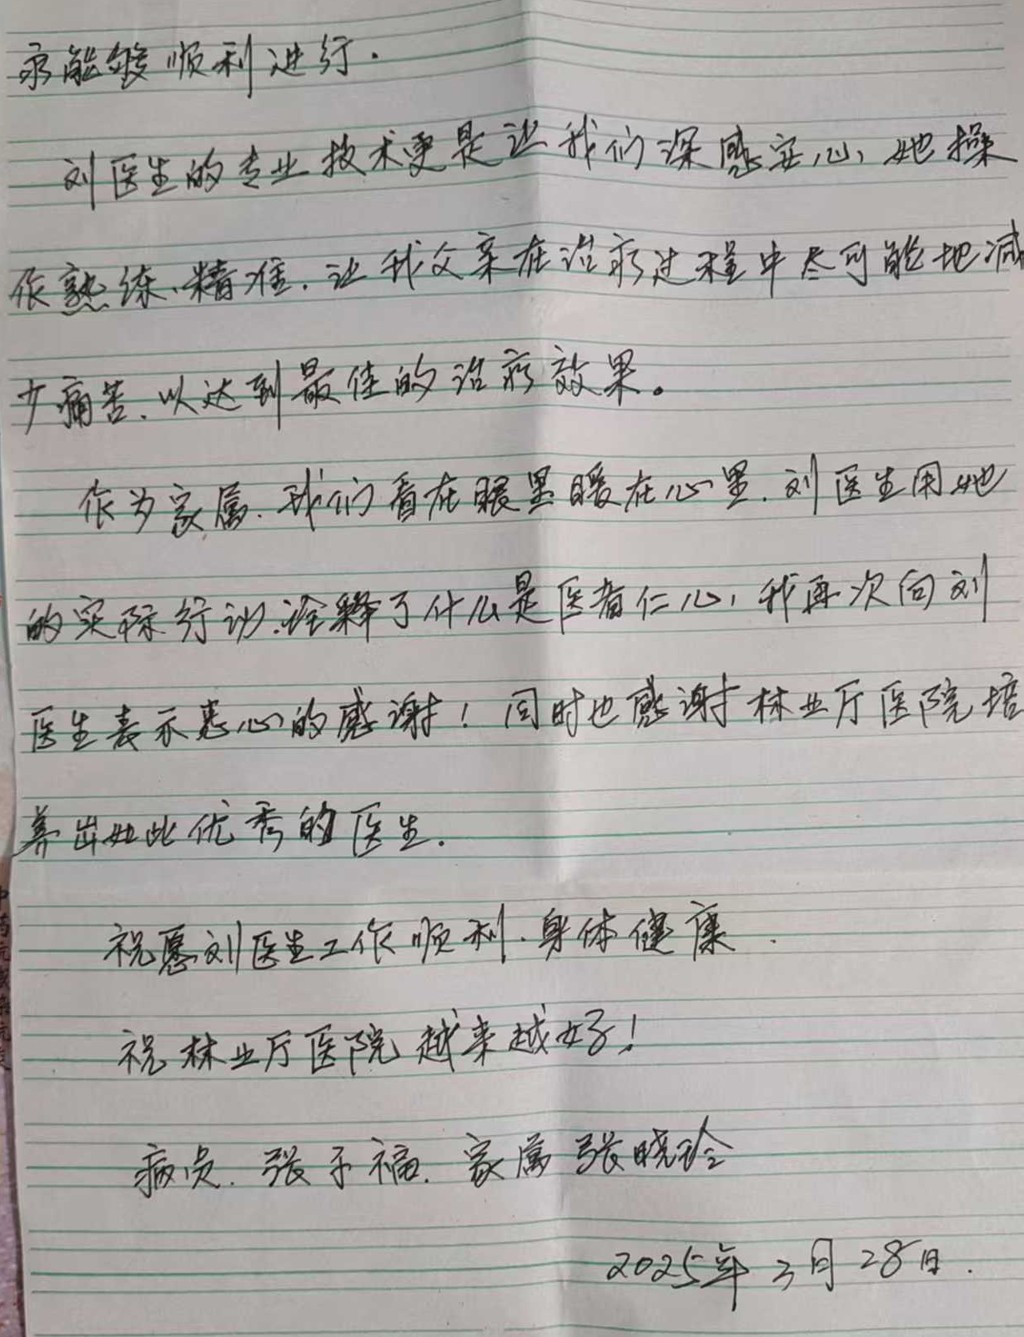 疗能够顺利进行.
刘医生的专业技术更是让我们深感安心，她操
作熟练、精准.让我父亲在治疗过程中尽可能地减
少痛苦.以达到最佳的治疗效果。
作为家属.我们看在眼里暖在心里.刘医生用她
的实际行动.诠释了什么是医者仁心，我再次向刘
医生表示衷心的感谢！同时也感谢林业厅医院培
养出如此优秀的医生.
祝愿刘医生工作顺利.身体健康.
祝林业厅医院越来越好！
病员.张子福.家属张晓玲
2025年3月28日.